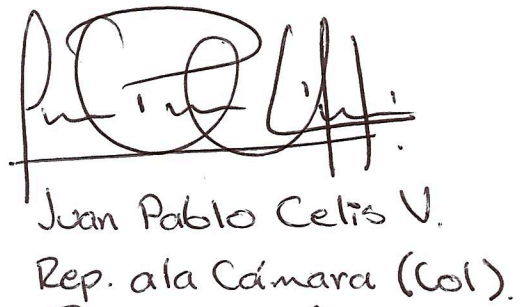 Juan Pablo Celis V.
Rep. ala Cámara (Col).